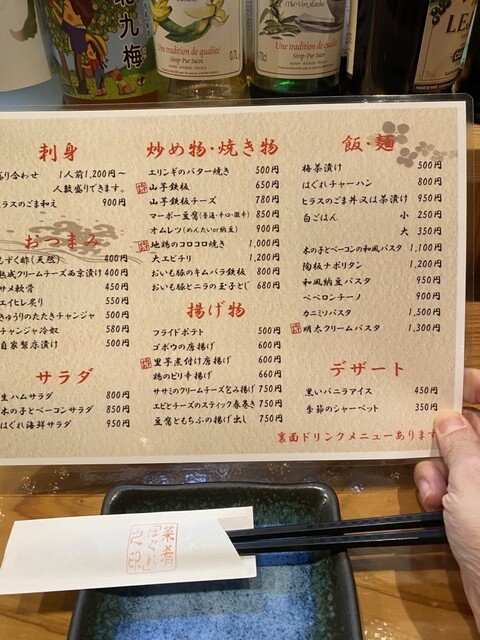 北九梅
Une tradition de qualité
Sirop·Pur Sucre
0,7L
The Vert Matcha
Une tradition de qualité
Sirop·Pur Sucre
刺身
り合わせ 1人前1,200円〜
人数盛りできます。
ヒラスのごま和え 900円
おつまみ
もずく酢(天然) 400円
熟成クリームチーズ西京漬け 400円
サメ軟骨 450円
エイヒレ炙り 550円
きゅうりのたたきチャンジャ 500円
チャンジャ冷奴 580円
自家製漬け 500円
サラダ
生ハムサラダ 800円
木の子とベーコンサラダ 850円
はぐれ海鮮サラダ 950円
炒め物・焼き物
エリンギのバター焼き 500円
山芋鉄板 650円
山芋鉄板チーズ 780円
マーボー豆腐(普通・辛口・激辛) 850円
オムレツ(めんたいor納豆) 900円
地鶏のコロコロ焼き 1,000円
大エビチリ 1,200円
おいも豚のキムバラ鉄板 800円
おいも豚とニラの玉子とじ 680円
揚げ物
フライドポテト 500円
ゴボウの唐揚げ 600円
里芋煮付け唐揚げ 660円
鶏のピリ辛揚げ 660円
ササミのクリームチーズ包み揚げ 750円
エビとチーズのスティック春巻き 750円
豆腐ともちふの揚げ出し 750円
飯・麺
梅茶漬け 500円
はぐれチャーハン 800円
ヒラスのごま丼又は茶漬け 950円
白ごはん 小 250円
大 350円
木の子とベーコンの和風パスタ 1,100円
陶板ナポリタン 1,200円
和風納豆パスタ 950円
ペペロンチーノ 900円
カニミソパスタ 1,500円
明太クリームパスタ 1,300円
デザート
黒いバニラアイス 450円
季節のシャーベット 350円
裏面ドリンクメニューあります
菜肴
はぐれ